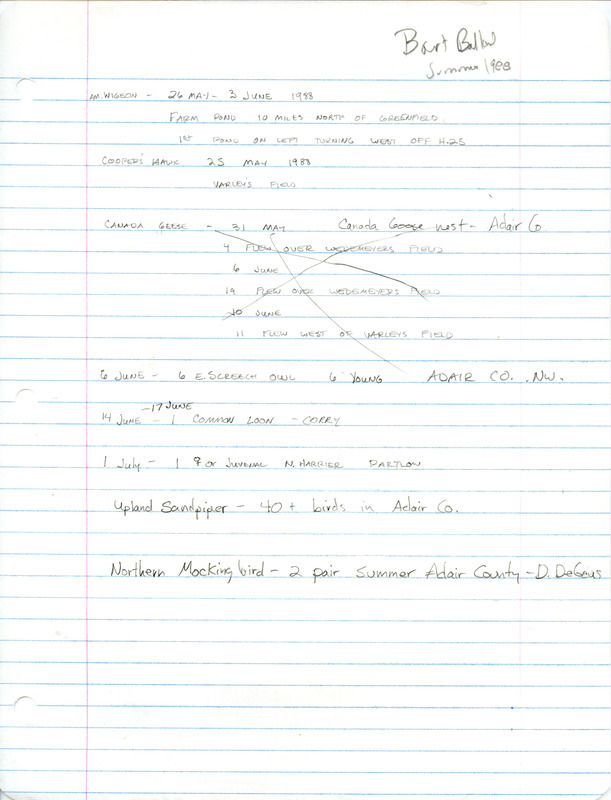 Bart Ballow
Summer 1988
AM. WIGEON - 26 MAY - 3 JUNE 1988
FARM POND 10 MILES NORTH OF GREENFIELD
1st POND ON LEFT TURNING WEST OFF H.25
COOPER'S HAWK 25 MAY 1988
VARLEYS FIELD
CANADA GEESE - 31 MAY Canada Goose nest - Adair Co
4 FLEW OVER WEDEMEYERS FIELD
6 JUNE
19 FLEW OVER WEDEMEYERS FIELD
10 JUNE
11 FLEW WEST OF VARLEYS FIELD
6 JUNE - 6 E. SCREECH OWL 6 YOUNG ADAIR CO. NW.
14 JUNE - 17 JUNE - 1 COMMON LOON - CORRY
1 July - 1 ♀ or JUVENAL N. HARRIER PARTLOW
Upland Sandpiper - 40 + birds in Adair Co.
Northern Mockingbird - 2 pair Summer Adair County - D. DeGeus